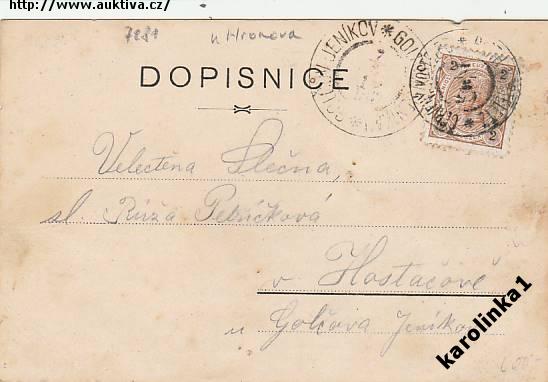 http://www.auktiva.cz
7281 u Hronova
DOPISNICE
JENÍKOV * GOL
2 2
2
Velectěna Slečna,
sl. Růža Petříčková
v Hostačově
u Golčova Jeníkova
karolinka1
600-